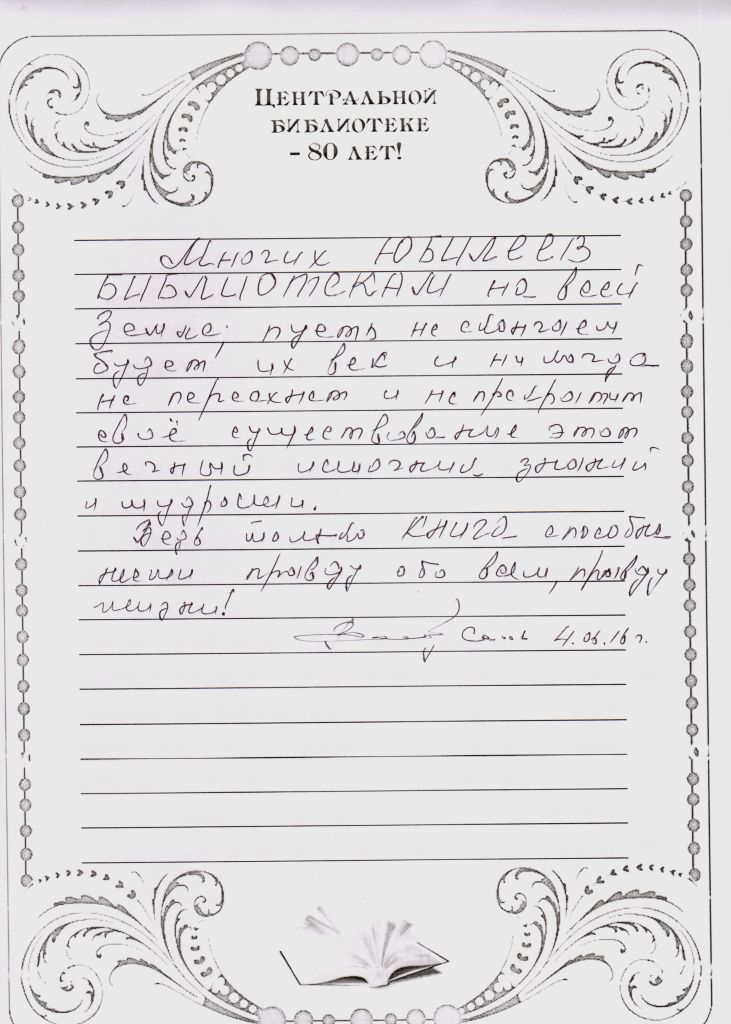 ЦЕНТРАЛЬНОЙ
БИБЛИОТЕКЕ
- 80 ЛЕТ!
Многих ЮБИЛЕЕВ
БИБЛИОТЕКАМ на всей
Земле, пусть не сконгаем
будет их век и никогда
не пересохнет и не прекратит
своё существование этот
вечный источник знаний
и мудрости.
Ведь только книга способна
нести правду обо всем, правду
жизни!
4.06.16 г.